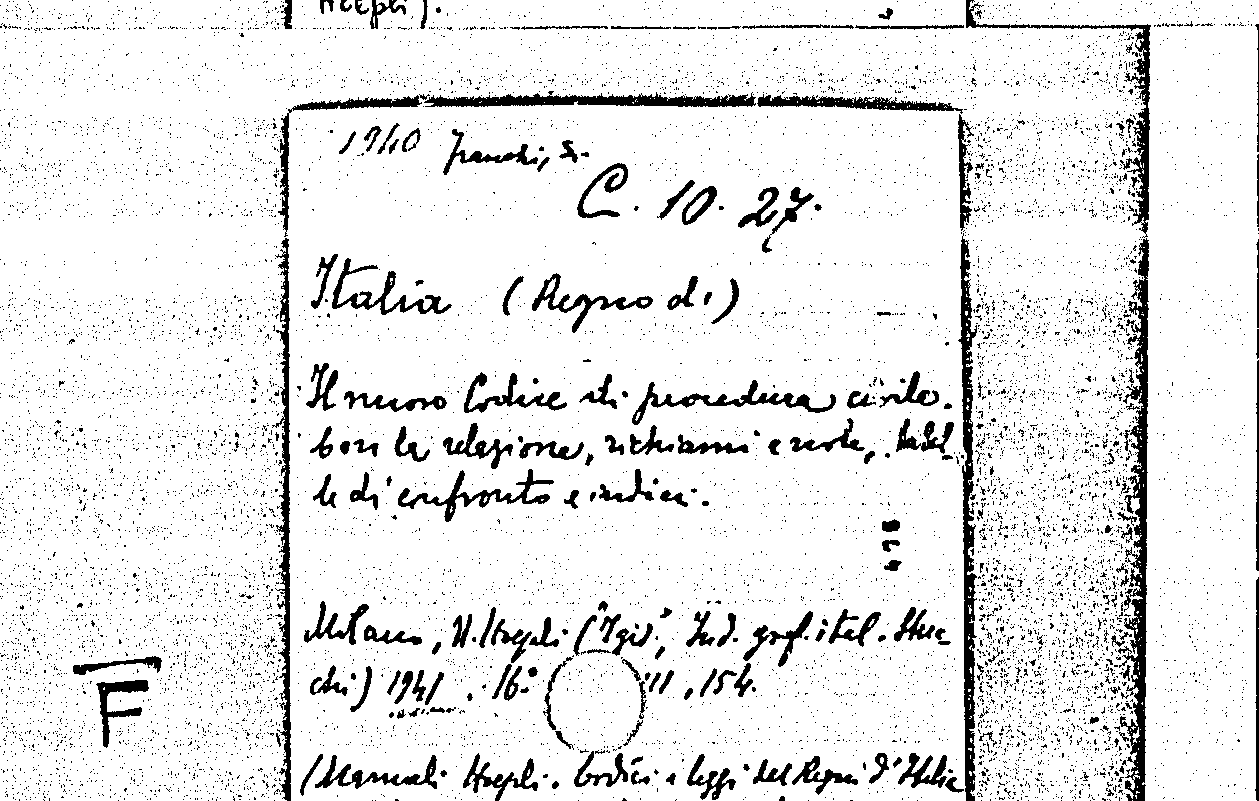 Hoepli).
1940 Franchi, L.
C. 10. 27.
Italia (Regno di)
Il nuovo Codice di procedura civile.
Con la relazione, richiami e note, tabel-
le di confronto e indici.
Milano, U. Hoepli ("Igis", Ind. graf. ital. Stuc-
chi) 1941 . 16° III , 154.
F
(Manuali Hoepli. Codici e leggi del Regno d'Italia